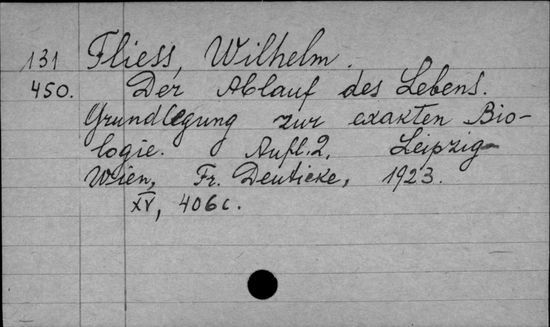 131 Fliess, Wilhelm.
450. Der Ablauf des Lebens.
Grundlegung zur exakten Bio-
logie. Aufl. 2. Leipzig-
Wien, Fr. Deuticke, 1923.
XV, 406 c.